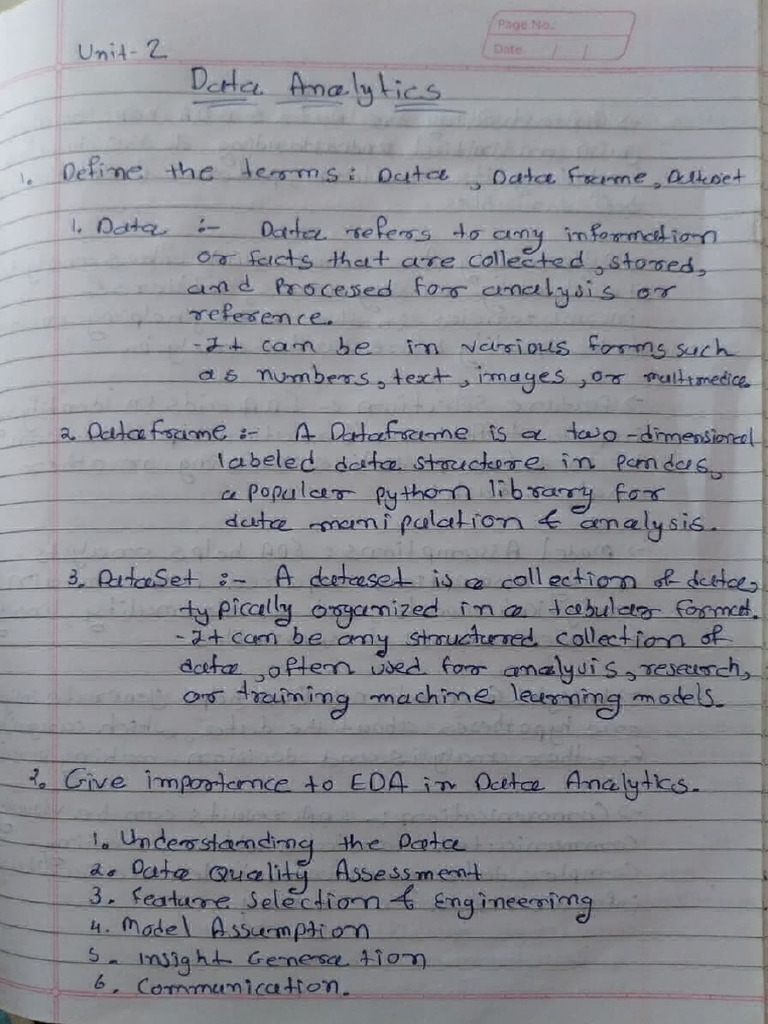 Page No.
Date / /
Unit-2
Data Analytics
1. Define the terms: Data, Data Frame, Dataset
1. Data :- Data refers to any information
or facts that are collected, stored,
and Processed for analysis or
reference.
-It can be in various forms such
as numbers, text, images, or multimedia
2. Dataframe :- A Dataframe is a two-dimensional
labeled data structure in pandas,
a popular python library for
data manipulation & analysis.
3. DataSet :- A dataset is a collection of data,
typically organized in a tabular format.
-It can be any structured collection of
data, often used for analysis, research,
or training machine learning models.
2. Give importance to EDA in Data Analytics.
1. Understanding the Data
2. Data Quality Assessment
3. Feature Selection & Engineering
4. Model Assumption
5. Insight Generation
6. Communication.